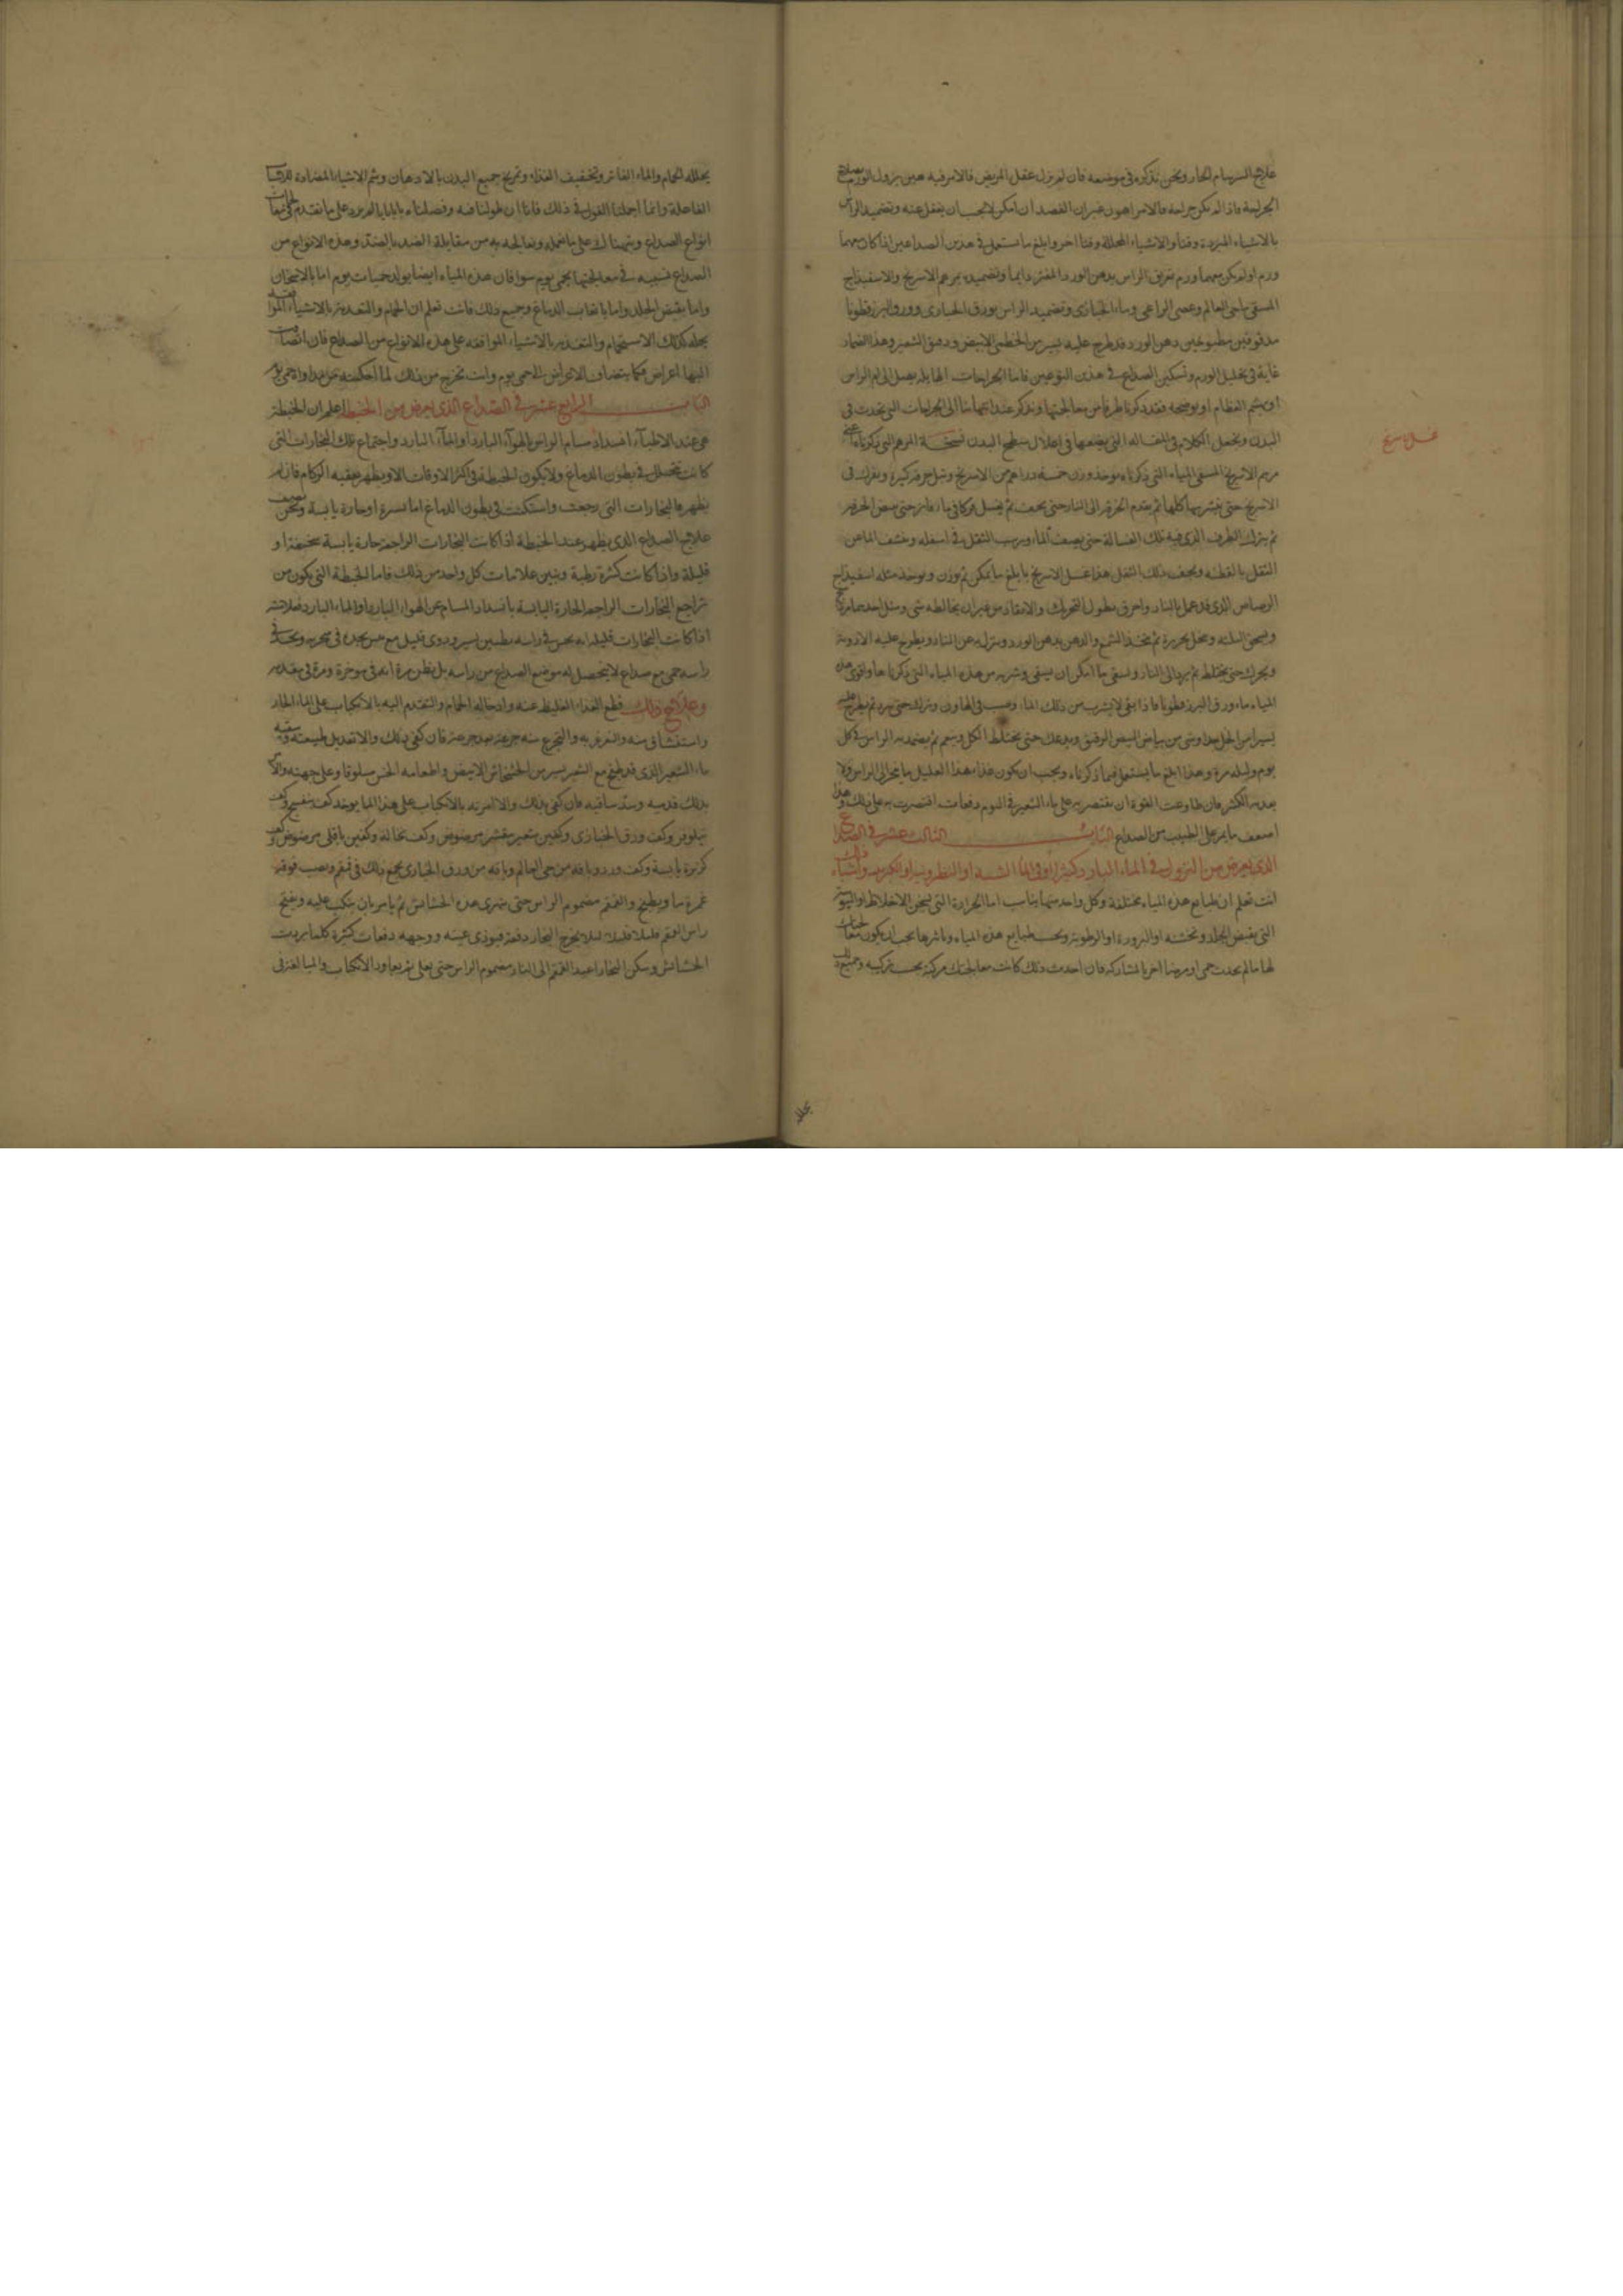 علاج السرسام الحار ونحن نذكره في موضعه فان لم يزل عقل المريض فالامر فيه هين يزول الورم بعلاج
الجراحة فاذا لم تكن جراحة فالامر اهون غير ان الفصد ان امكن لا يجب ان يغفل عنه وتضميد الراس
بالاشياء المبردة وقتا والاشياء المحللة وقتا اخر وابلغ ما تستعمل في هذين الصداعين اذا كان معهما
ورم او لم يكن معهما ورم تغريق الراس بدهن الورد المفتر دايما وتضميده بمرهم الاسرنج والاسفيذاج
المسقى بماحي العالم وعصى الراعي وماء الخبازى وتضميد الراس بورق الخبازى وورق البزرقطونا
مدقوقين مطبوخين بدهن الورد قد طرح عليه يسير من الخطمى الابيض ودقيق الشعير وهذا الضماد
غاية في تحليل الورم وتسكين الصداع في هذين النوعين فاما الجراحات الهايلة يصل الى ام الراس
او يهشم العظام او يوضحه فقد ذكرنا طرفا من معالجتها ونذكر عند انتهائنا الى الجراحات التي تحدث في
البدن ونجعل الكلام في المقالة التي نضعها في اعلال سطح البدن نسخة المرهم التي ذكرناه
غسل اسرنج
مرهم الاسرنج المسقى المياه التي ذكرناه يوخذ وزن خمسة دراهم من الاسرنج وتبل خرقة كبيرة ويفرك في
الاسرنج حتى يشربها كلها ثم يقدم الخرقة الى النار حتى يجف ثم يغسل فركا في ماء فاتر حتى تبيض الخرقة
ثم يترك الظرف الذي فيه تلك الغسالة حتى يصف الماء ويرسب الثفل في اسفله وينشف الماء عن
الثفل بالقطنة ويجفف ذلك الثفل هذا غسل الاسرنج بابلغ ما يمكن ثم يوزن ويوخذ مثله اسفيذاج
الرصاص الذي قد عمل بالنار واحرق بطول التحريك والايقاد من غير ان يخالطه شي
ويتخذ الشمع والدهن بدهن الورد وينزله عن النار ويطرح عليه الادوية
ويحرك حتى يختلط ثم يرد الى النار ويسقى ما امكن ان يسقى وشربه من هذه المياه التي ذكرناها واقوى هذه
المياه ماء ورق البزرقطونا فاذا بقى لا يشرب من ذلك الماء وصب في الهاون وترك حتى يبرد ثم يطرح عليه
يسيرا من الخل جدا وشي من بياض البيض الرقيق ويدعك حتى يختلط الكل وينعم ثم يضمد به الراس في كل
يوم وليلة مرة وهذا ابلغ ما يستعمل فيما ذكرناه ويجب ان يكون غذاء هذا العليل ما ينجر الى الراس ولا
يغذيه الكثير فان طاوعت القوة ان يقتصر به على ماء الشعير في اليوم دفعات اقتصرت به على ذلك وهذا
اصعب ما يمر على الطبيب من الصداع الباب الثالث عشر في الصداع
الذي يعرض من النزول في الماء البارد كثيرا او في الماء الشبية او النطرونية او الكبريتية واشباه ذلك
انت تعلم ان طبايع هذه المياه مختلفة وكل واحد منها يناسب اما الحرارة التي تسخن الاخلاط او اليبوسة
التي تقبض الجلد وتخشنه او البرودة او الرطوبة وبحسب طبايع هذه المياه وتاثيرها يجب ان يكون
لها ما لم يحدث حمى او مرضا اخر بالمشاركة فان احدث ذلك كانت معالجتك مركبة بحسب تركيبه وجميع ذلك
يحلله
يحلله الحمام والماء الفاتر وتخفيف الغذاء وتمريخ جميع البدن بالادهان وشم الاشياء المضادة
الفاعلة وانما اجملنا القول في ذلك فانا ان طولنا فيه وفصلناه بابا بابا لم يزد على ما تقدم
انواع الصداع ونبهناك على ما تعمله وتعالجه به من مقابلة الضد بالضد وهذه الانواع من
الصداع شبيه في معالجتها بحمى يوم سوا فان هذه المياه ايضا يولد حميات يوم اما بالاسخان
واما بقبض الجلد واما باتعاب الدماغ وجميع ذلك فانت تعلم ان الحمام والتغذية بالاشياء الموافقة
يحله كذلك الاستحمام والتغذية بالاشياء الموافقة على هذه الانواع من الصداع فان انضاف
اليها اعراض فكما يتضاف الاعراض الى حمى يوم وانت تخرج من ذلك لما احكمته من مداواة حمى يوم
الباب الرابع عشر في الصداع الذي يعرض من الخبطة اعلم ان الخبطة
هي عند الاطباء انسداد مسام الراس بالهواء البارد او الماء البارد واجتماع تلك البخارات التي
كانت تتحلل في بطون الدماغ ولا يكون الخبطة في اكثر الاوقات الا ويظهر عقيبه الزكام فان لم
يظهر فالبخارات التي رجعت واستكنت في بطون الدماغ اما يسيرة او حارة يابسة ونحن نصف
علاج الصداع الذي يظهر عند الخبطة اذا كانت البخارات الراجعة حارة يابسة خفيفة او
قليلة واذا كانت كثيرة رطبة ونبين علامات كل واحد من ذلك فاما الخبطة التي يكون من
تراجع البخارات الراجعة الحارة اليابسة بانسداد المسام عن الهواء البارد او الماء البارد فعلامته
اذا كانت البخارات قليلة انه يحس في راسه بطنين يسير ودوى قليل مع حس يجده في منخريه ويجد في
راسه حمى مع صداع لا يتحصل له موضع الصداع من راسه بل يظن مرة انه في موخره ومرة في مقدمه
وعلاج ذلك قطع الغذاء الغليظ عنه وادخاله الحمام والتقدم اليه بالانكباب على الماء الحار
واستنشاق منه والتغرغر به والتجرع منه جرعة بعد جرعة فان كفى ذلك والا تعديل طبيعته وسقيه
ماء الشعير الذي قد طبخ مع الشعير يسير من الخشخاش الابيض واطعامه الخس مسلوقا وعلى جهته والامر
بدلك قدميه وشد ساقيه فان كفى بذلك والا امرته بالانكباب على هذا الماء يوخذ كف بنفسج وكف
نيلوفر وكف ورق الخبازى وكفين شعير مقشر مرضوض وكف نخالة وكفين باقلى مرضوض وكف
كزبرة يابسة وكف ورد وباقة من حي العالم وباقة من ورق الخبازى يجمع ذلك في قمقم ويصب فوقه
غمره ماء ويطبخ والقمقم مضموم الراس حتى يتهرى هذه الحشايش ثم يامر بان ينكب عليه ويفتح
راس القمقم قليلا قليلا ليلا يخرج البخار دفعة فيوذى عينه ووجهه دفعات كثيرة كلما بردت
الحشائش وسكن البخار اعيد القمقم الى النار مضموم الراس حتى يغلى ثم يعاود الانكباب والمبالغة في